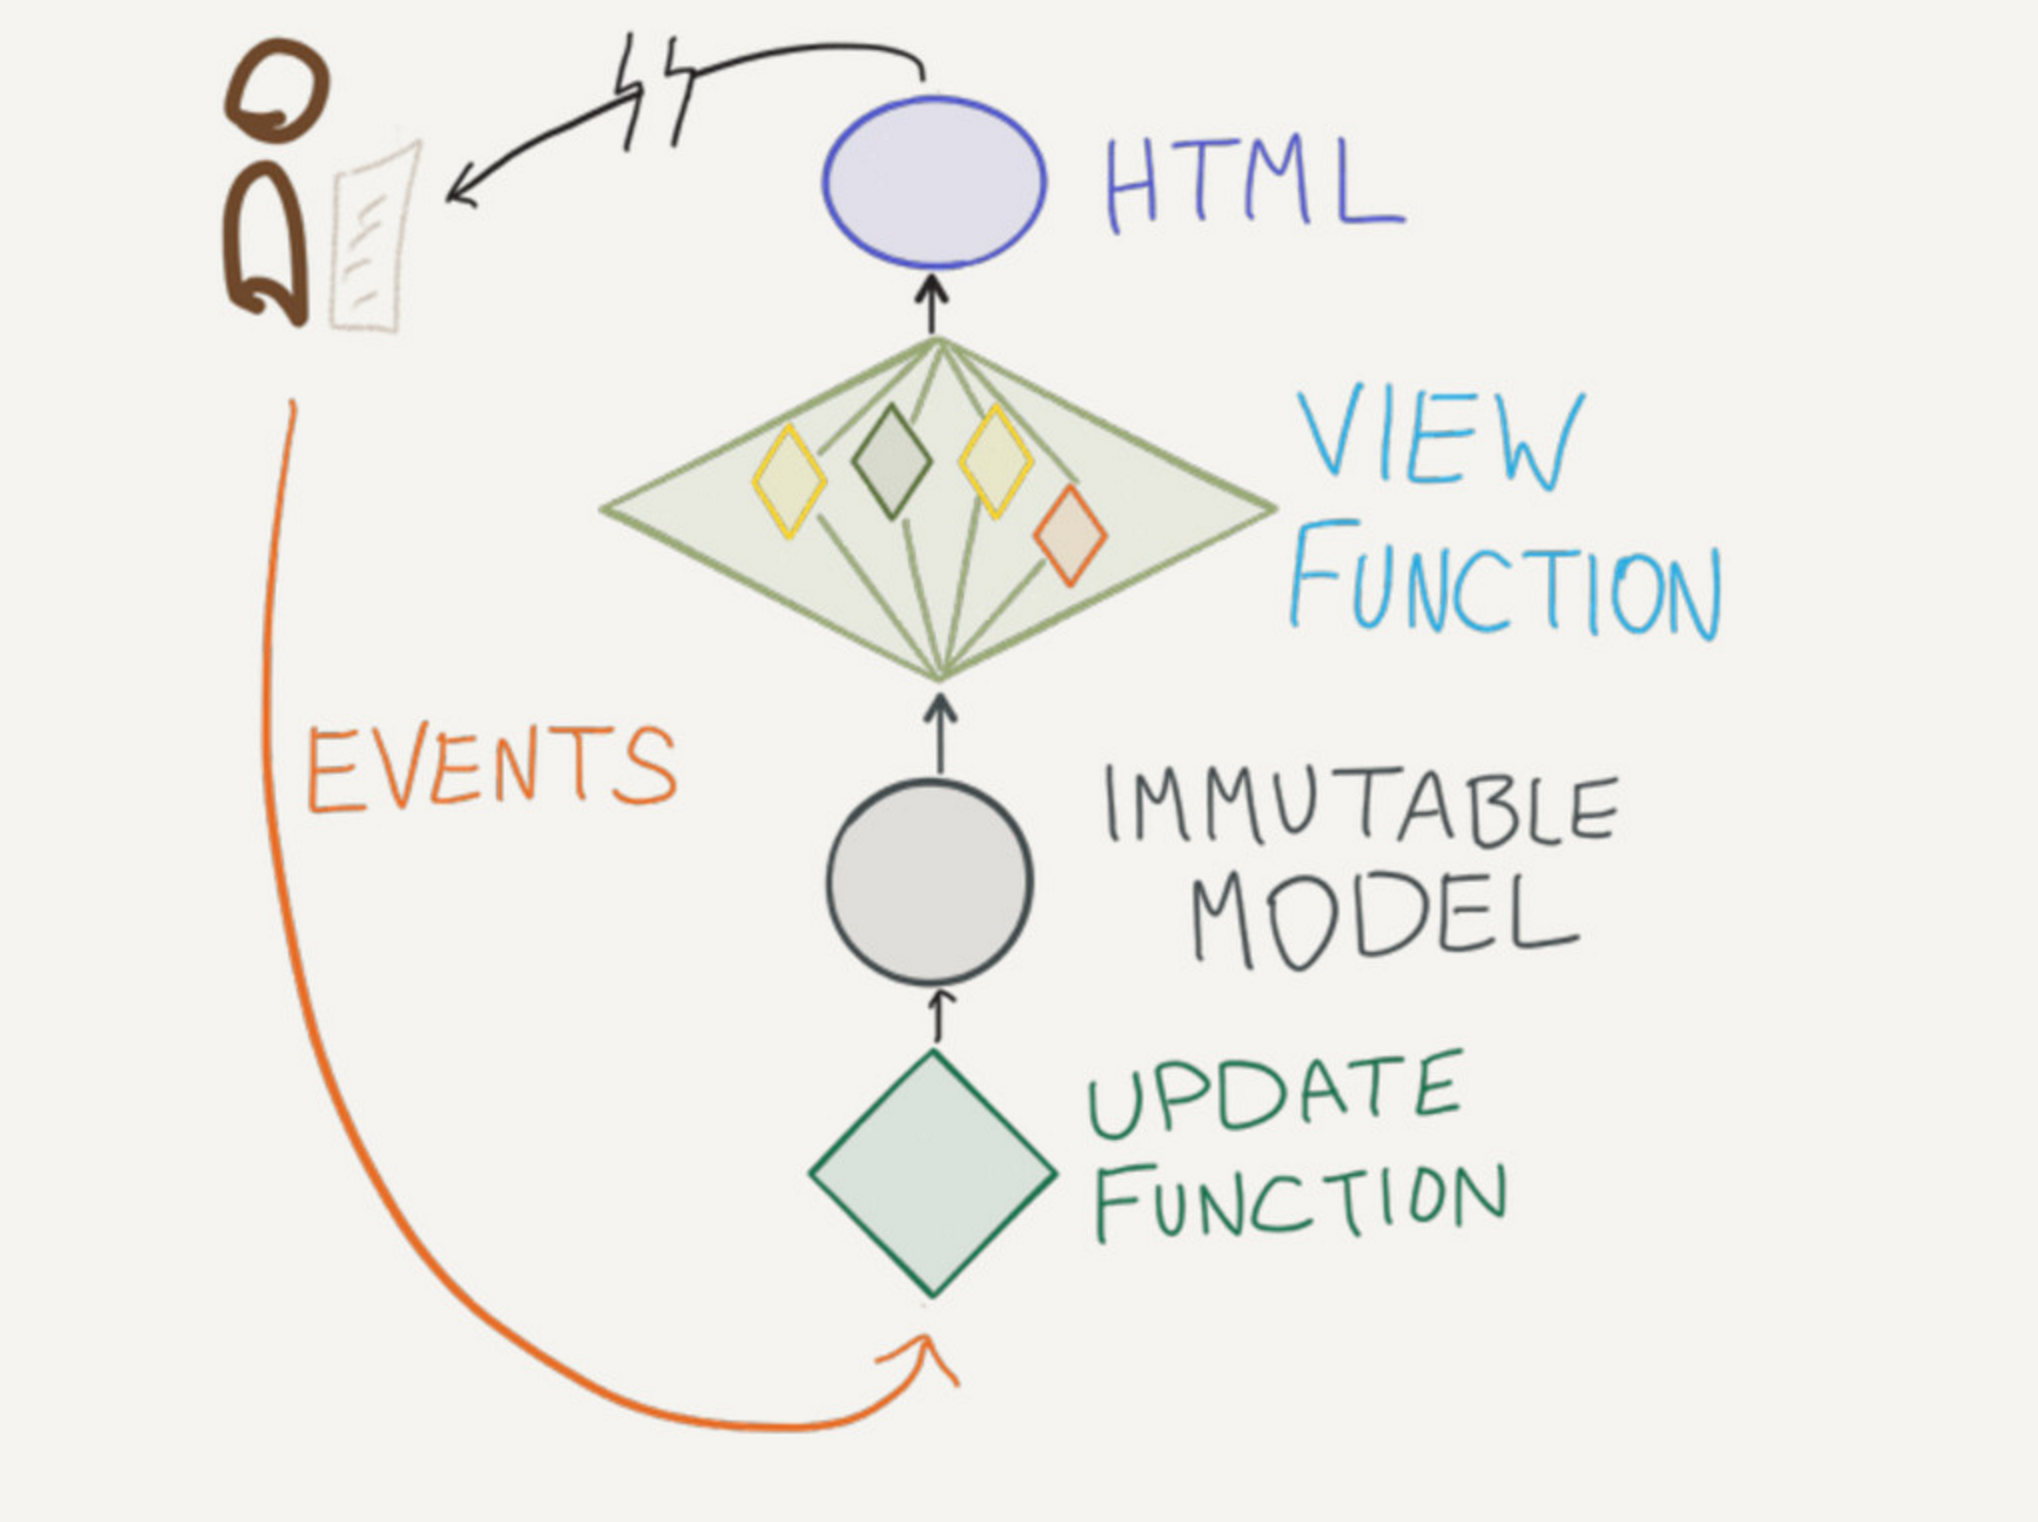 HTML
VIEW
FUNCTION
EVENTS
IMMUTABLE
MODEL
UPDATE
FUNCTION